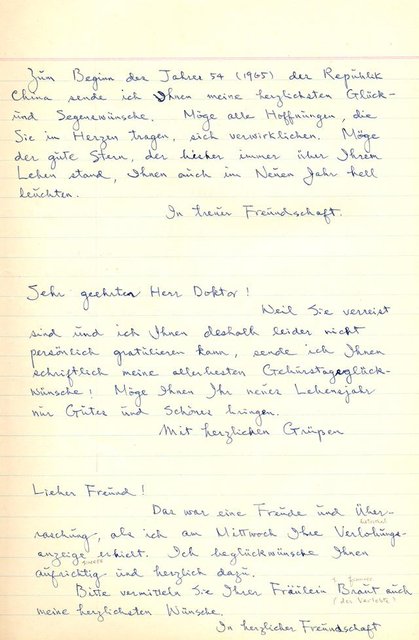 Zum Beginn des Jahres 54 (1965) der Republik
China sende ich Ihnen meine herzlichsten Glück-
und Segenswünsche. Möge alle Hoffnungen, die
Sie im Herzen tragen, sich verwirklichen. Möge
der gute Stern, der bisher immer über Ihrem
Leben stand, Ihnen auch im Neuen Jahr hell
leuchten.
In treuer Freundschaft.
Sehr geehrter Herr Doktor!
Weil Sie verreist
sind und ich Ihnen deshalb leider nicht
persönlich gratulieren kann, sende ich Ihnen
schriftlich meine allerbesten Geburtstagsglück-
wünsche! Möge Ihnen Ihr neues Lebensjahr
nur Gutes und Schönes bringen.
Mit herzlichen Grüßen
Lieber Freund!
Das war eine Freude und Über-
raschung, als ich am Mittwoch Ihre Verlobungs-
anzeige erhielt. Ich beglückwünsche Ihnen
aufrichtig und herzlich dazu.
Bitte vermitteln Sie Ihrer Fräulein Braut auch
(der Verlobte)
meine herzlichsten Wünsche.
In herzlicher Freundschaft